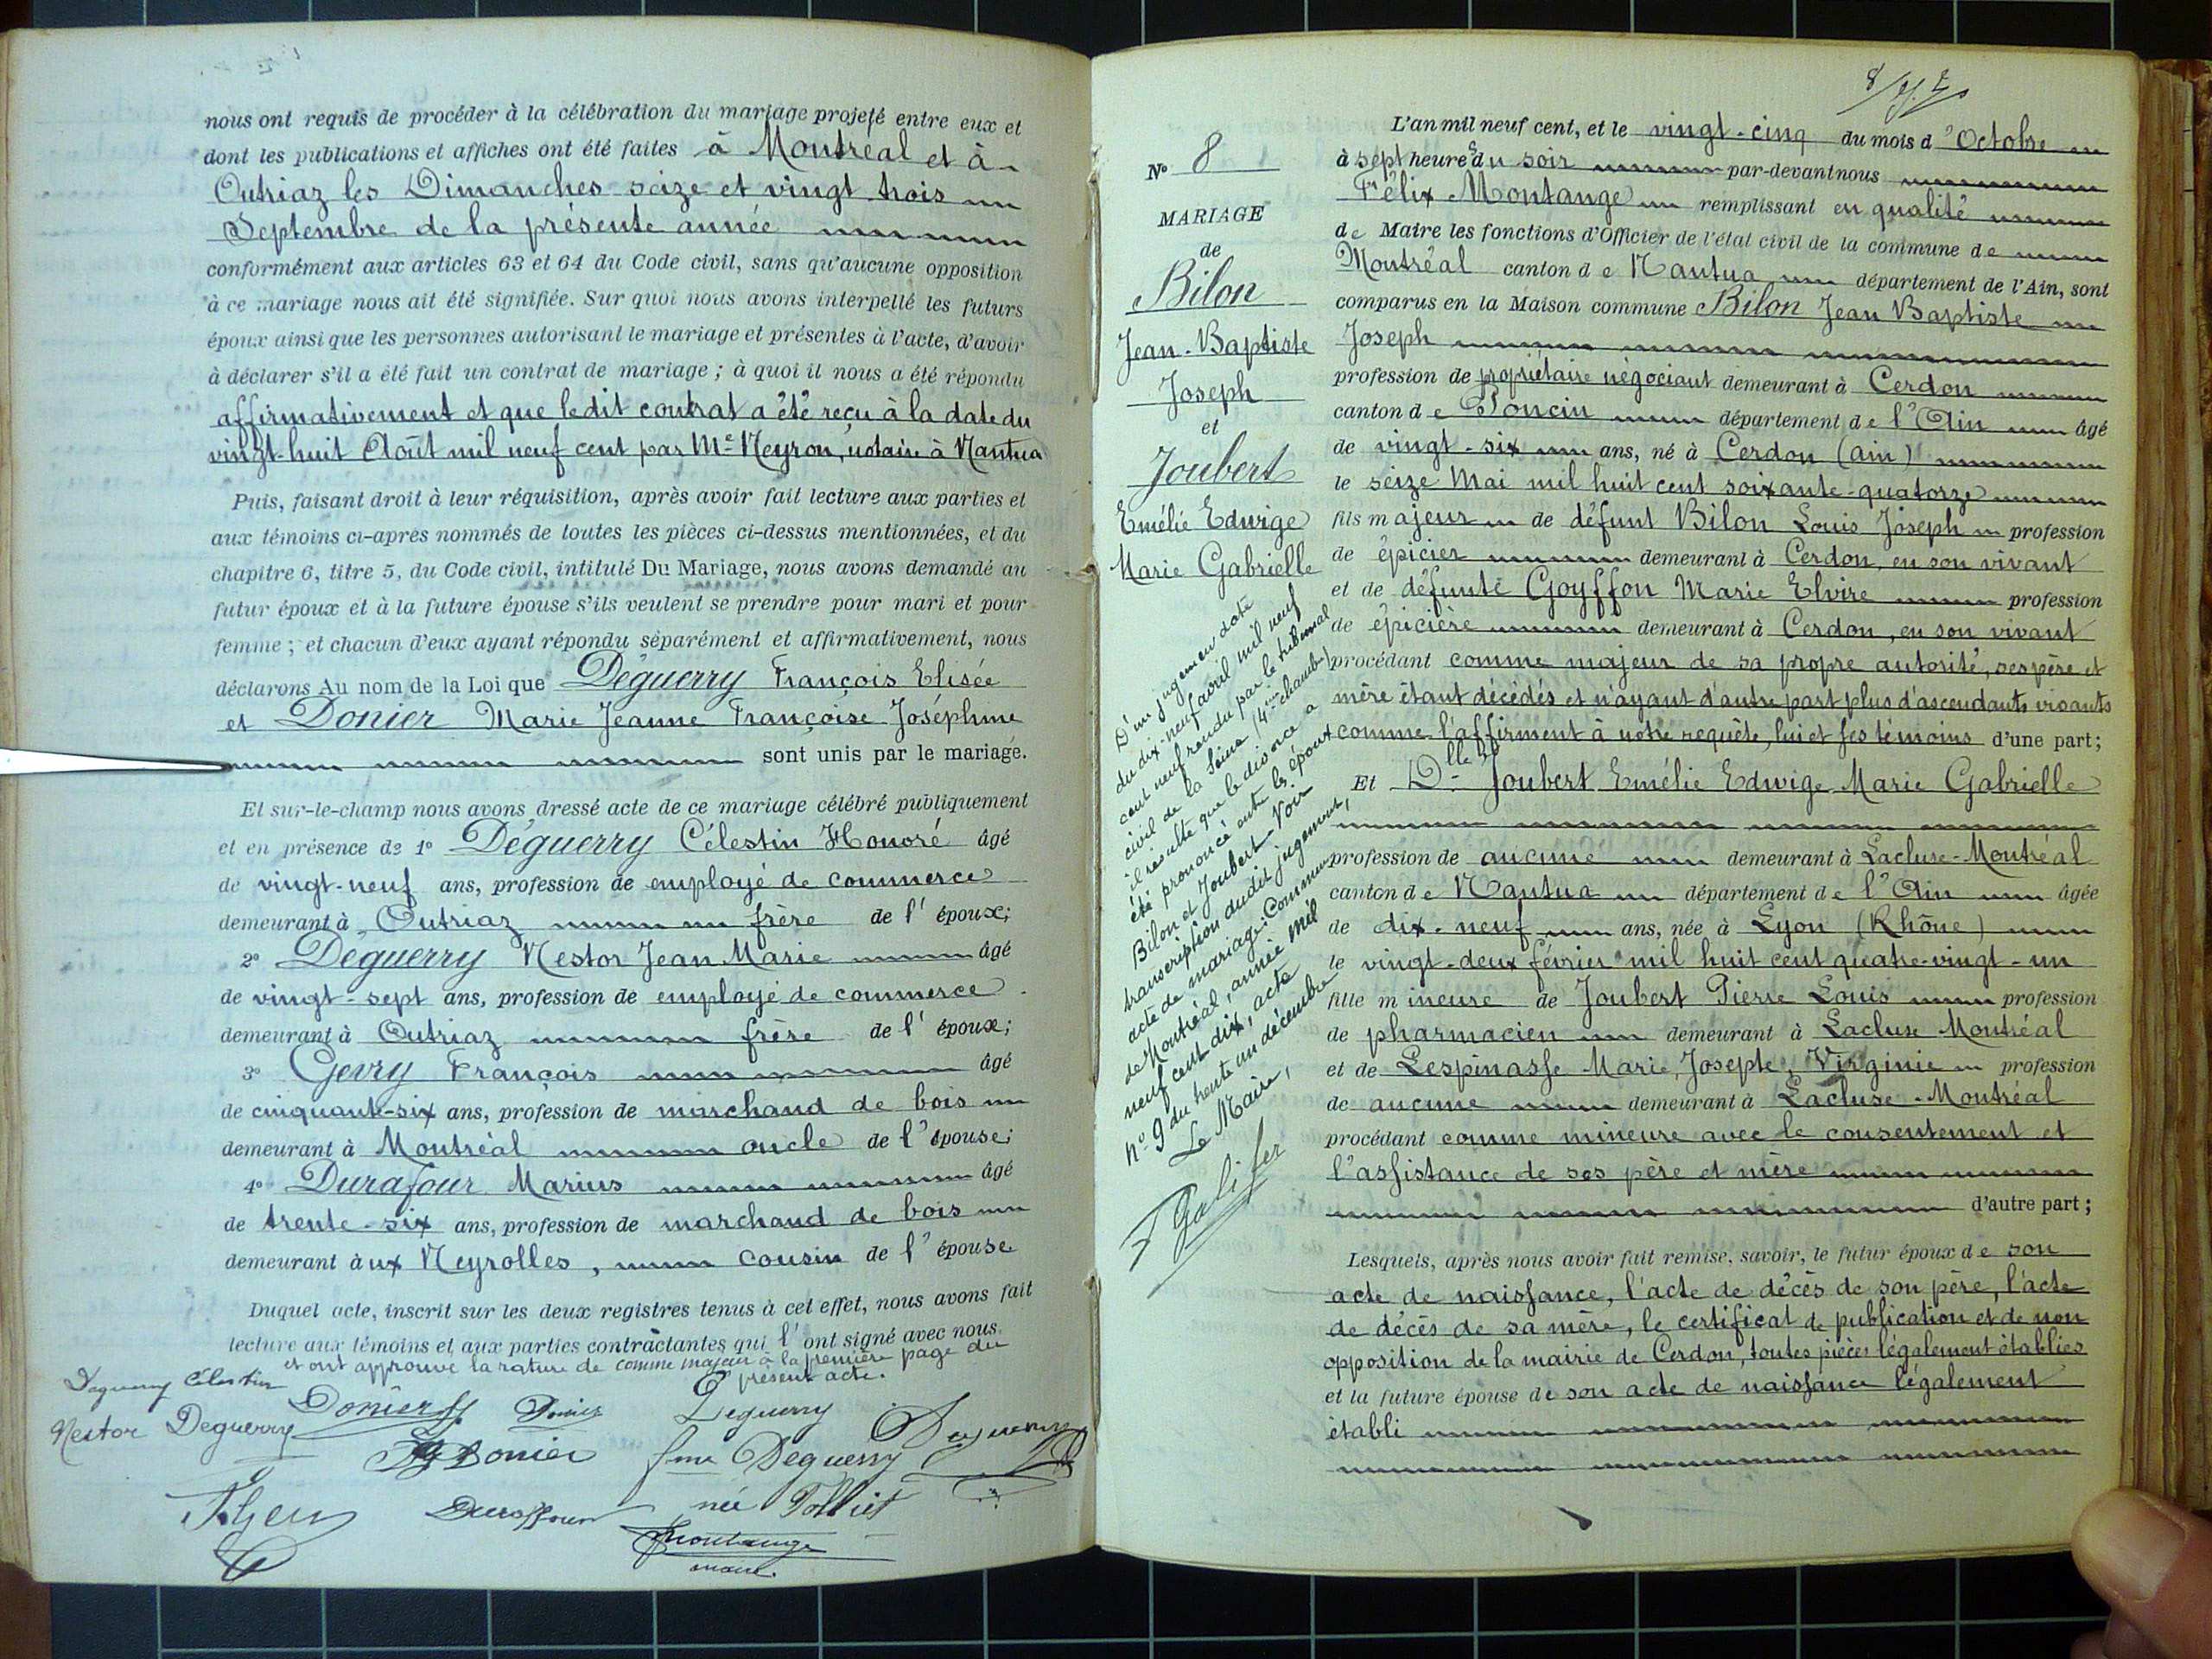 nous ont requis de procéder à la célébration du mariage projeté entre eux et
dont les publications et affiches ont été faites à Montréal et à
Outriaz les Dimanches seize et vingt trois
Septembre de la présente année
conformément aux articles 63 et 64 du Code civil, sans qu'aucune opposition
à ce mariage nous ait été signifiée. Sur quoi nous avons interpellé les futurs
époux ainsi que les personnes autorisant le mariage et présentes à l'acte, d'avoir
à déclarer s'il a été fait un contrat de mariage ; à quoi il nous a été répondu
affirmativement et que ledit contrat a été reçu à la date du
vingt-huit Août mil neuf cent par Me Neyron, notaire à Nantua
Puis, faisant droit à leur réquisition, après avoir fait lecture aux parties et
aux témoins ci-après nommés de toutes les pièces ci-dessus mentionnées, et du
chapitre 6, titre 5, du Code civil, intitulé Du Mariage, nous avons demandé au
futur époux et à la future épouse s'ils veulent se prendre pour mari et pour
femme ; et chacun d'eux ayant répondu séparément et affirmativement, nous
déclarons Au nom de la Loi que Déguerry François Elisée
et Donier Marie Jeanne Françoise Joséphine
sont unis par le mariage.
Et sur-le-champ nous avons dressé acte de ce mariage célébré publiquement
et en présence de 1° Déguerry Célestin Honoré âgé
de vingt-neuf ans, profession de employé de commerce
demeurant à Outriaz frère de l'époux;
2° Déguerry Nestor Jean Marie âgé
de vingt-sept ans, profession de employé de commerce
demeurant à Outriaz frère de l'époux;
3° Gevry François âgé
de cinquante-six ans, profession de marchand de bois
demeurant à Montréal oncle de l'épouse;
4° Durafour Marius âgé
de trente-six ans, profession de marchand de bois
demeurant aux Neyrolles, cousin de l'épouse
Duquel acte, inscrit sur les deux registres tenus à cet effet, nous avons fait
lecture aux témoins et aux parties contractantes qui l'ont signé avec nous.
et ont approuvé la rature de comme majeur à la première page du
présent acte.
Deguerry Célestin
Donier Donier Deguerry
Nestor Deguerry
Donier fme Deguerry
née Tolliet
Montange
maire.
N° 8
MARIAGE
de
Bilon
Jean-Baptiste
Joseph
et
Joubert
Emélie Edwige
Marie Gabrielle
D'un jugement daté
du dix-neuf avril mil neuf
cent neuf rendu par le tribunal
civil de la Seine (4me chambre)
il résulte que le divorce a
été prononcé entre les époux
Bilon et Joubert. Voir
transcription dudit jugement,
acte de mariage: Commune
de Montréal, année mil
neuf cent dix, acte
n° 9 du trente un décembre
Le Maire,
F Galifer
L'an mil neuf cent, et le vingt-cinq du mois d'Octobre
à sept heures du soir par-devant nous
Félix Montange remplissant en qualité
de Maire les fonctions d'Officier de l'état civil de la commune de
Montréal canton de Nantua département de l'Ain, sont
comparus en la Maison commune Bilon Jean Baptiste
Joseph
profession de propriétaire négociant demeurant à Cerdon
canton de Poncin département de l'Ain âgé
de vingt-six ans, né à Cerdon (ain)
le seize Mai mil huit cent soixante-quatorze
fils majeur de défunt Bilon Louis Joseph profession
de épicier demeurant à Cerdon, en son vivant
et de défunte Goyffon Marie Elvire profession
de épicière demeurant à Cerdon, en son vivant
procédant comme majeur de sa propre autorité, ses père et
mère étant décédés et n'ayant d'autre part plus d'ascendants vivants
comme l'affirment à notre requête, lui et ses témoins d'une part;
Et Dlle Joubert Emélie Edwige Marie Gabrielle
profession de aucune demeurant à Lacluse-Montréal
canton de Nantua département de l'Ain âgée
de dix-neuf ans, née à Lyon (Rhône)
le vingt-deux février mil huit cent quatre-vingt-un
fille mineure de Joubert Pierre Louis profession
de pharmacien demeurant à Lacluse Montréal
et de Lespinasse Marie, Josepte, Virginie profession
de aucune demeurant à Lacluse-Montréal
procédant comme mineure avec le consentement et
l'assistance de ses père et mère
d'autre part;
Lesquels, après nous avoir fait remise, savoir, le futur époux de son
acte de naissance, l'acte de décès de son père, l'acte
de décès de sa mère, le certificat de publication et de non
opposition de la mairie de Cerdon, toutes pièces légalement établies
et la future épouse de son acte de naissance légalement
établi